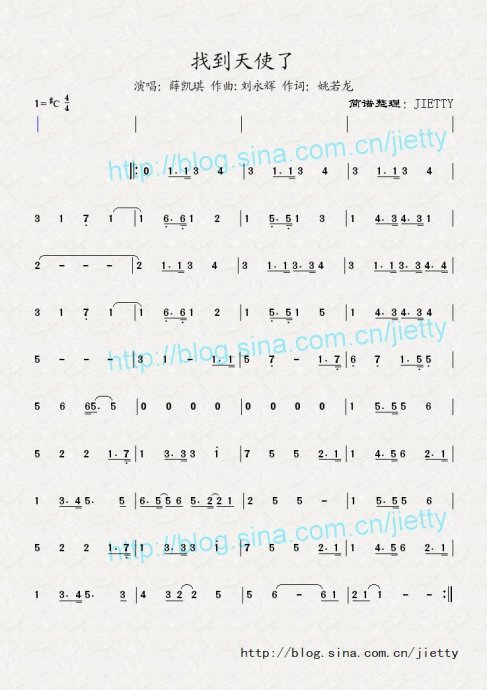 找到天使了
演唱: 薛凯琪 作曲: 刘永辉 作词: 姚若龙
1=#C 4/4 简谱整理: JIETTY
http://blog.sina.com.cn/jietty
‖: 0 1. 1 3 4 | 3 1. 1 3 4 | 3 1. 1 3 4 |
3 1 7 1 | 1 6. 6 1 2 | 1 5. 5 1 3 | 1 4. 3 4. 3 1 |
2 - - - | 2 1. 1 3 4 | 3 1. 1 3. 3 4 | 3 1. 1 3. 3 4. 4 |
3 1 7 1 | 1 6. 6 1 2 | 1 5. 5 1 3 | 1 4. 3 4. 3 4 |
http://blog.sina.com.cn/jietty
5 - - - | 3 1 - 1. 1 | 5 7 - 1. 7 | 6 7 1. 5 5 |
5 6 6 5. 5 | 0 0 0 0 | 0 0 0 0 | 1 5. 5 5 6 |
5 2 2 1. 7 | 1 3. 3 3 i | 7 5 5 2. 1 | 1 4. 5 6 2. 1 |
1 3. 4 5. 5 | 6. 5 5 6 5. 2 2 1 | 2 5 5 - | 1 5. 5 5 6 |
http://blog.sina.com.cn/jietty
5 2 2 1. 7 | 1 3. 3 3 i | 7 5 5 2. 1 | 1 4. 5 6 2. 1 |
1 3. 4 5. 3 | 4 3 2 2 5 | 5 6 - 6 | 2 1 1 - - :‖
http://blog.sina.com.cn/jietty